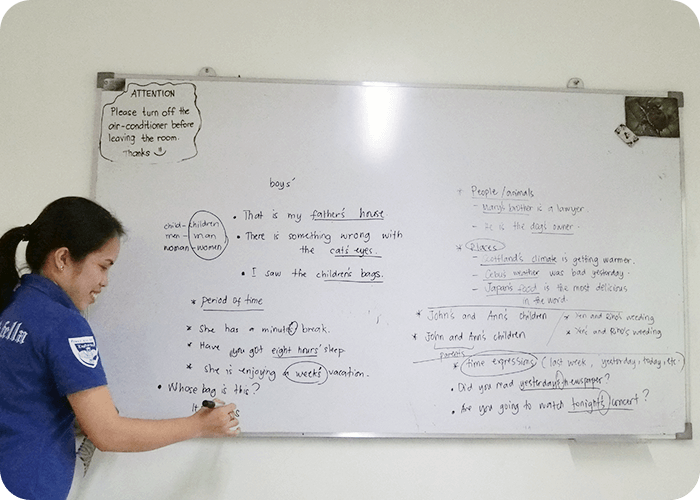 ATTENTION
Please turn off the
air-conditioner before
leaving the room.
Thanks
boys'
child - children
men - man
woman - women
• That is my father's house
• There is something wrong with
the cat's eyes.
• I saw the children's bags.
* period of time
* She has a minute's break.
* Have you got eight hours' sleep
* She is enjoying a week's vacation.
• Whose bag is this?
It
* People/animals
- Mary's brother is a lawyer.
- He is the dog's owner.
* Places
- Scottland's climate is getting warmer.
- Cebu's weather was bad yesterday.
- Japan's food is the most delicious
in the word.
* John's and Ann's children
* John and Ann's children
parents
* Yen and Riho's weeding
* Yen's and Riho's weeding
* time expressions (last week, yesterday, today, etc.
• Did you read yesterday's newspaper?
• Are you going to watch tonight's concert?